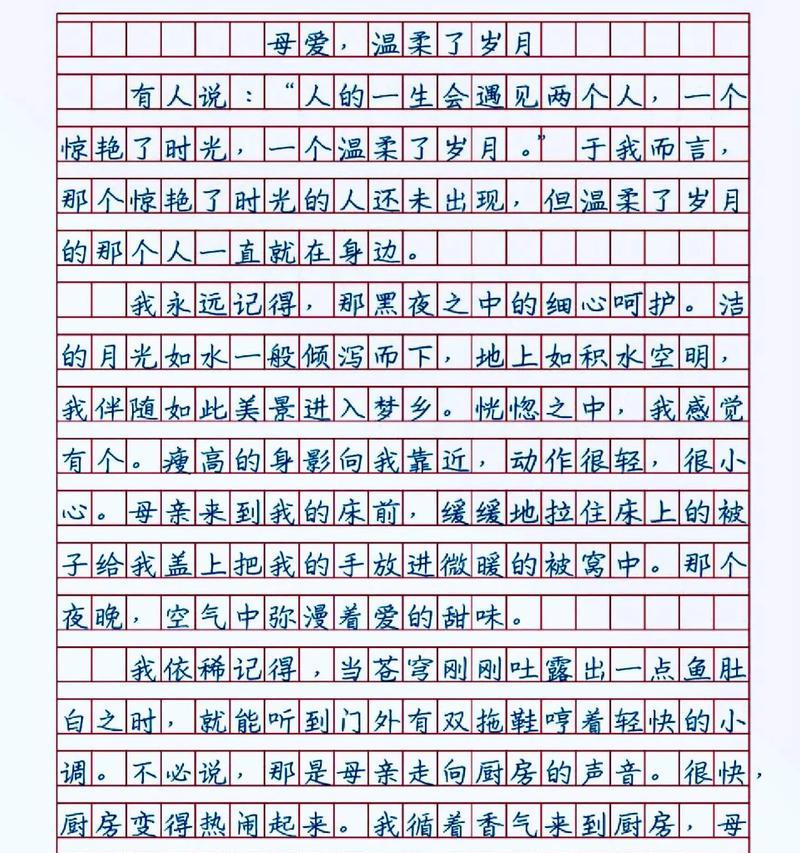 母爱，温柔了岁月
有人说：“人的一生会遇见两个人，一个
惊艳了时光，一个温柔了岁月。”于我而言，
那个惊艳了时光的人还未出现，但温柔了岁月
的那个人一直就在身边。
我永远记得，那黑夜之中的细心呵护。洁
的月光如水一般倾泻而下，地上如积水空明，
我伴随如此美景进入梦乡。恍惚之中，我感觉
有个。瘦高的身影向我靠近，动作很轻，很小
心。母亲来到我的床前，缓缓地拉住床上的被
子给我盖上把我的手放进微暖的被窝中。那个
夜晚，空气中弥漫着爱的甜味。
我依稀记得，当苍穹刚刚吐露出一点鱼肚
白之时，就能听到门外有双拖鞋哼着轻快的小
调。不必说，那是母亲走向厨房的声音。很快，
厨房变得热闹起来。我循着香气来到厨房，母